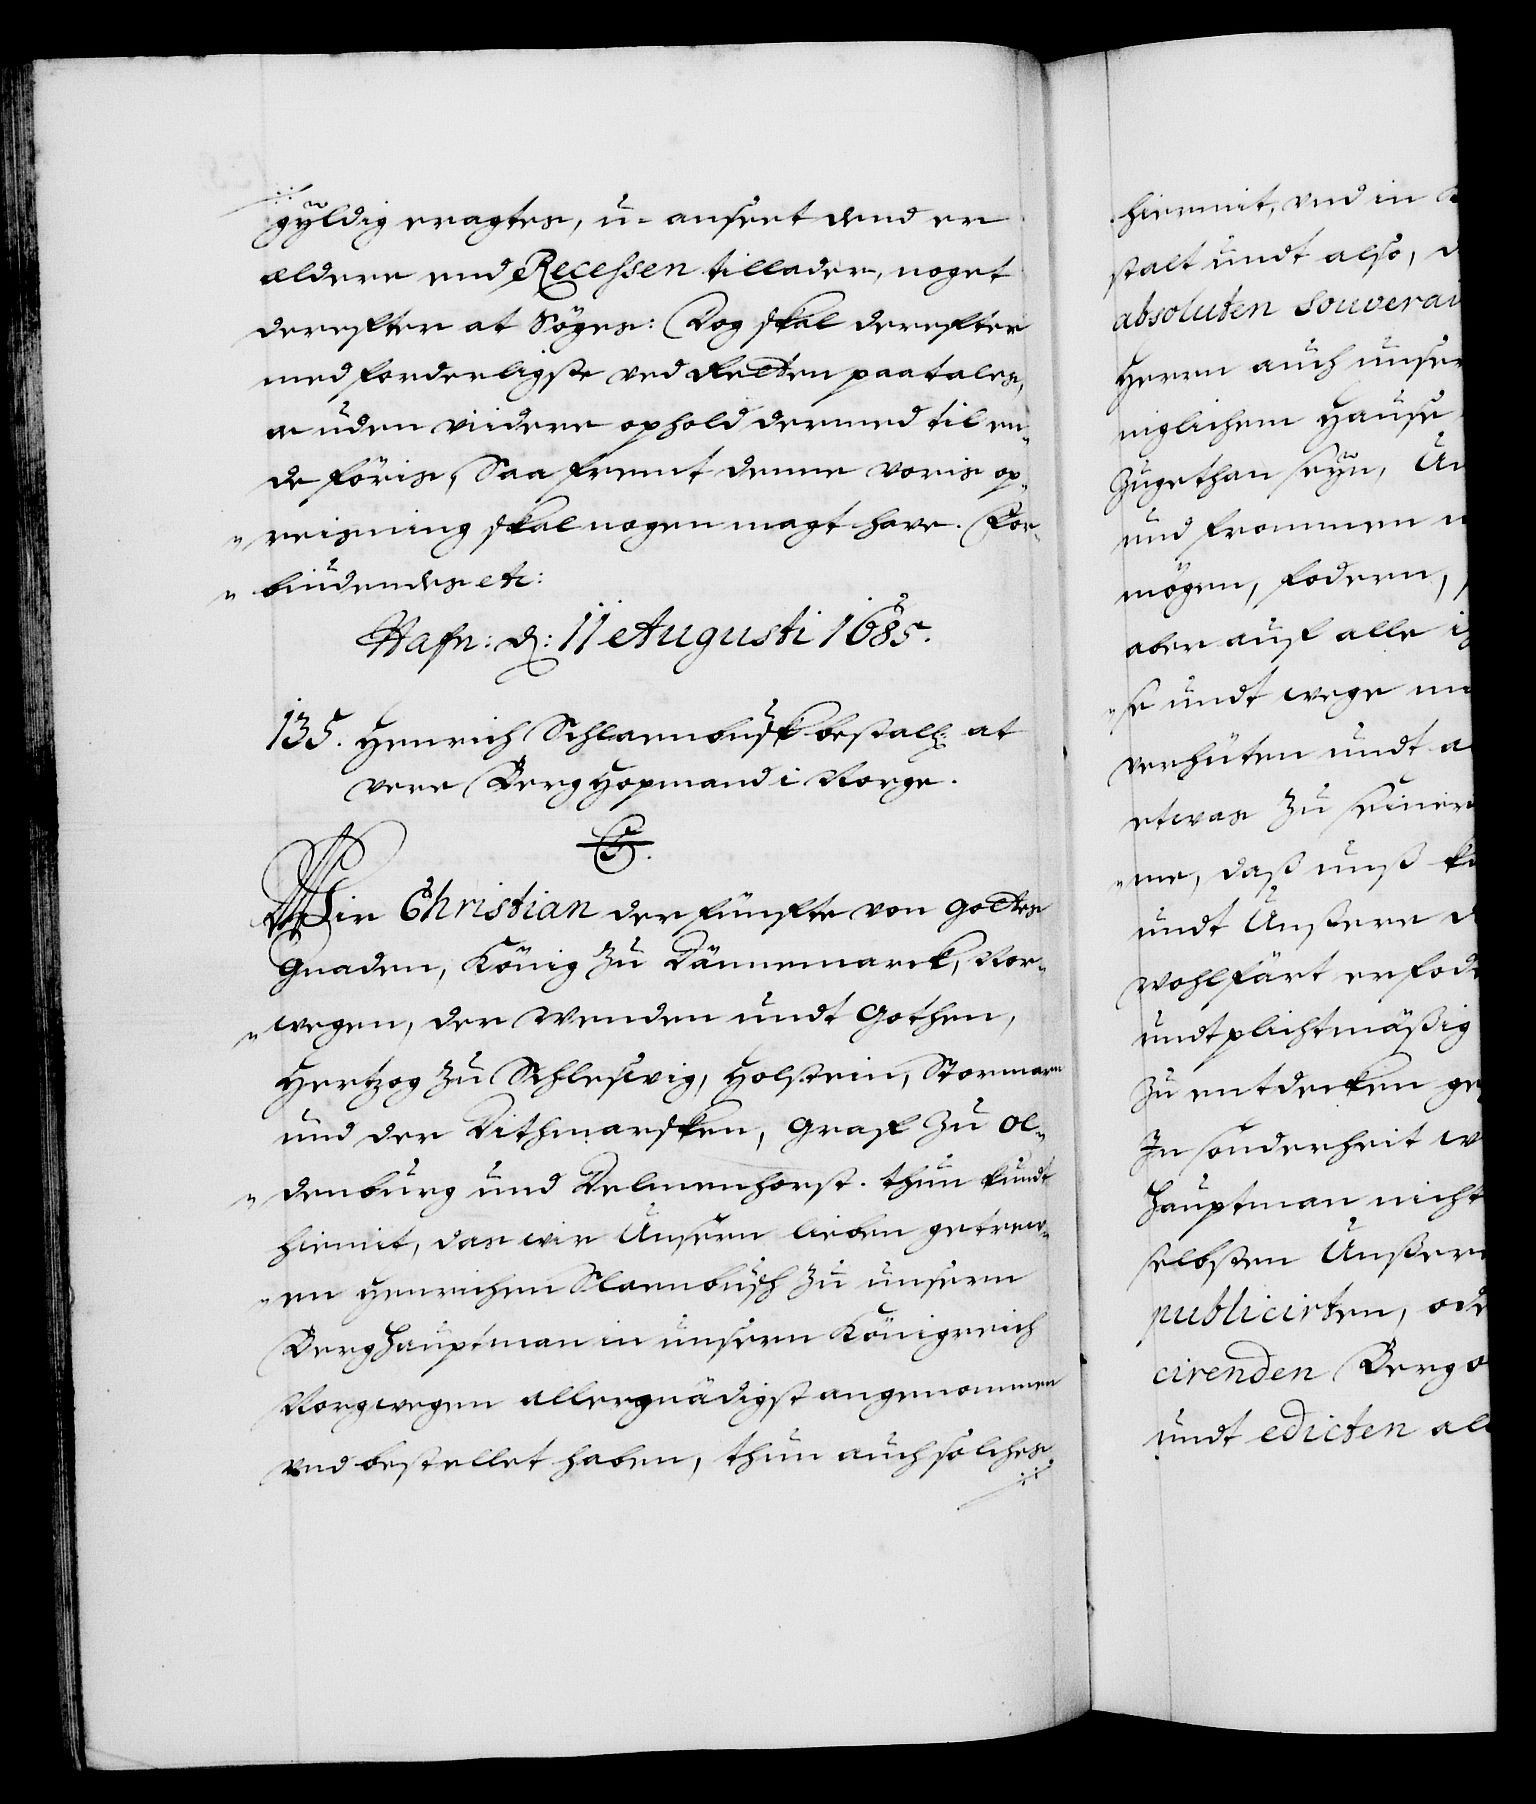 gyldig eragtes, u-anseet dend er
eldere end Recessen tillader, noget
derefter at Söges: Dog skal derefter
med forderligste ved Retten paatales,
oc uden viidere ophold dermed til en-
de föris, Saa fremt denne voris op-
reisning skal nogen magt have. For-
biudendes etc:
Hafn: d: 11 Augusti 1685.
135. Henrich Schlanbusk bestall: at
vere Berg Hopmand i Norge.
C5.
Wir Christian der fünfte von Gottes
Gnaden, König zu Dännemarck, Nor-
wegen, der Wenden undt Gothen,
Hertzog zu Schleswig, Holstein, Stormarn
und der Dithmarsken, Graf zu Ol-
denburg und Delmenhorst. thun kundt
hiemit, das wir Unsern lieben getrew-
en Henrichen Slanbusch zu unsern
Berghauptman in unsern Königreich
Norgwegen allergnädigst angenommen
und bestellet haben, thun auch solches
hiermit, und in
stalt undt also, d
absoluten Souverai
Herrn auch unser
niglichem Hause
zugethan seyn, Un
und frommen
mögen, fodern,
aber auf alle
se undt wege
verhüten undt
etwas zu seiner
me, daß unß
undt Unßere d
wohlfart erfod
undt plichtmäßig
zu entdecken
In sonderheit w
Hauptman nicht
selbsten Unßere
publicirten, ode
cirenden Bergo
undt edicten all